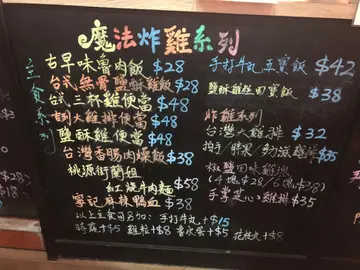 魔法炸雞系列
主食系列
古早味魯肉飯 $28
台式無骨鹽酥雞飯 $28
台式三杯雞便當 $48
大雞排便當 $48
鹽酥雞便當 $48
台灣香腸肉燥飯 $38
桃源街蘭姐
紅燒牛肉麵 $58
麻辣鴨血 $38
以上主食可另加：手打牛丸+$15
時蔬+$5 雞粒+$8 香水雲+$ 花枝丸+$8
手打牛丸五寶飯 $42
鹽酥雞 寶飯 $38
炸雞系列
台灣大雞排 $32
$35
椒鹽回味雞塊
(4塊$28/6塊$38)
心雞排 $35